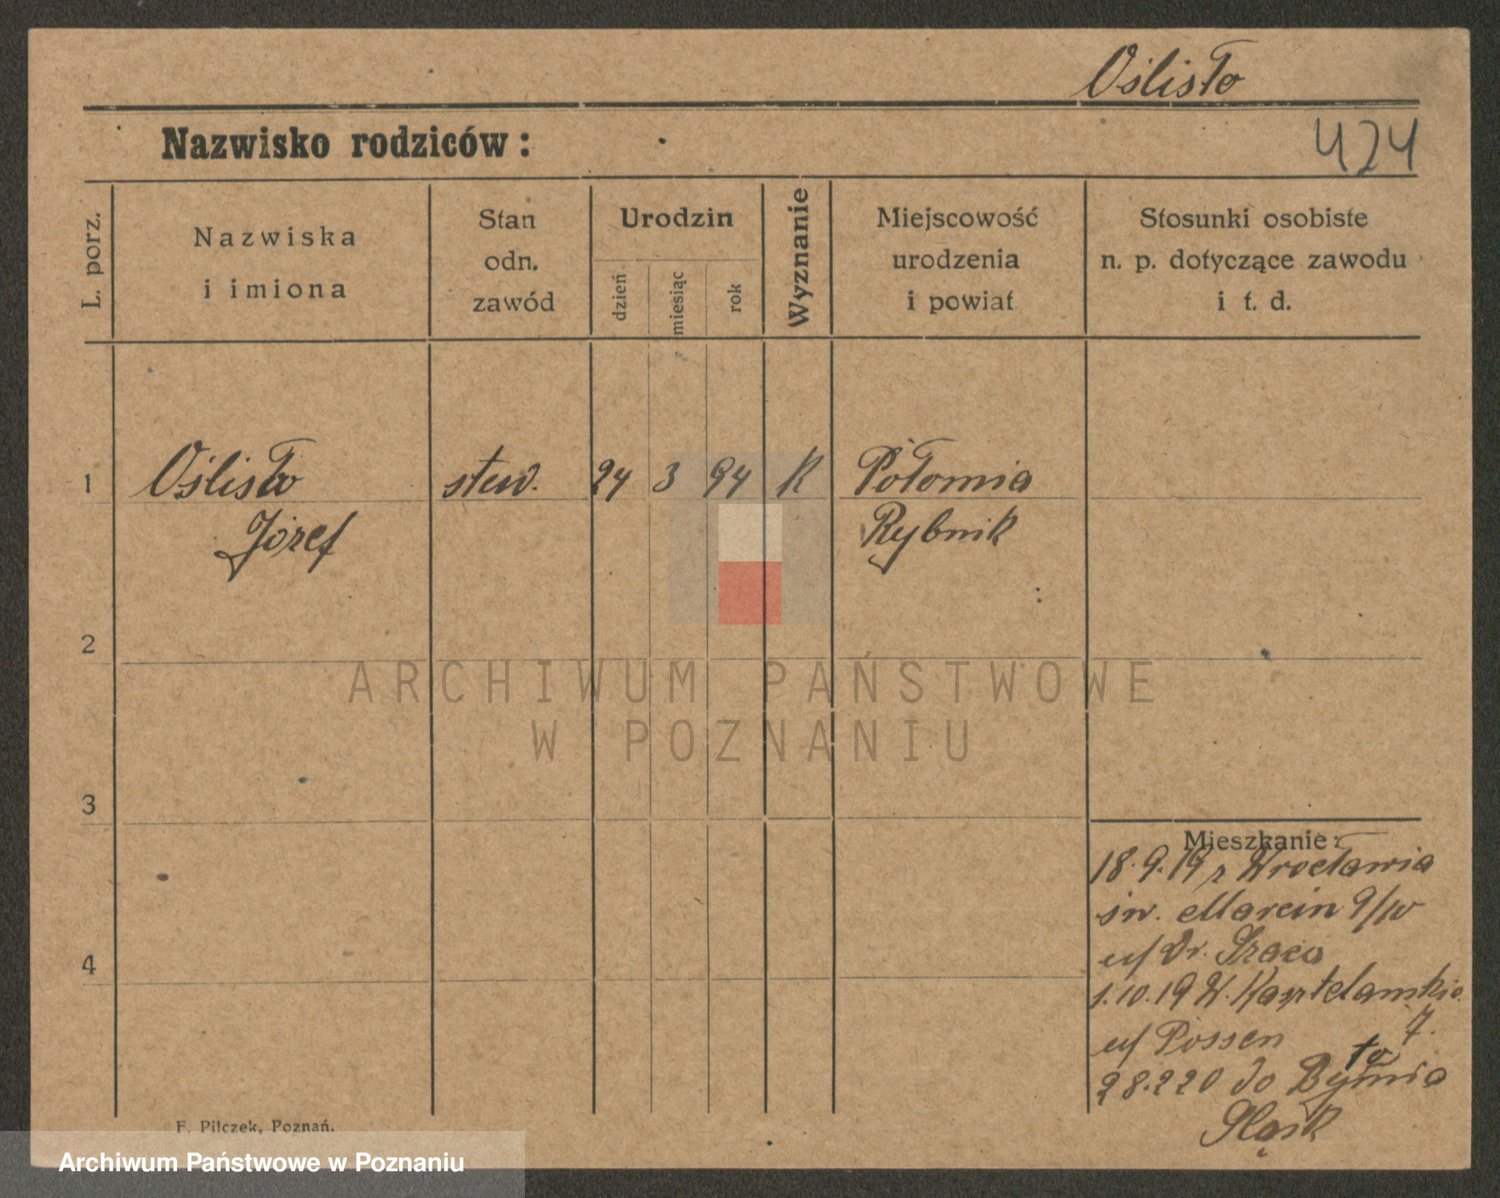 Oślisło
Nazwisko rodziców:
424
L. porz.
Nazwiska
i imiona
Stan
odn.
zawód
Urodzin
dzień
miesiąc
rok
Wyznanie
Miejscowość
urodzenia
i powiat
Stosunki osobiste
n. p. dotyczące zawodu
i t. d.
1
Oślisło
Józef
stud.
24
3
94
K
Połomia
Rybnik
2
3
4
Mieszkanie:
18.9.19 z Wrocławia
św. Marcin 9/IV
u/ Dr.
1.10.19 W.
7.
u/ Possen
28.2 20 do Bytomia
Śląsk
F. Pilczek, Poznań.
ARCHIWUM PAŃSTWOWE
W POZNANIU
Archiwum Państwowe w Poznaniu